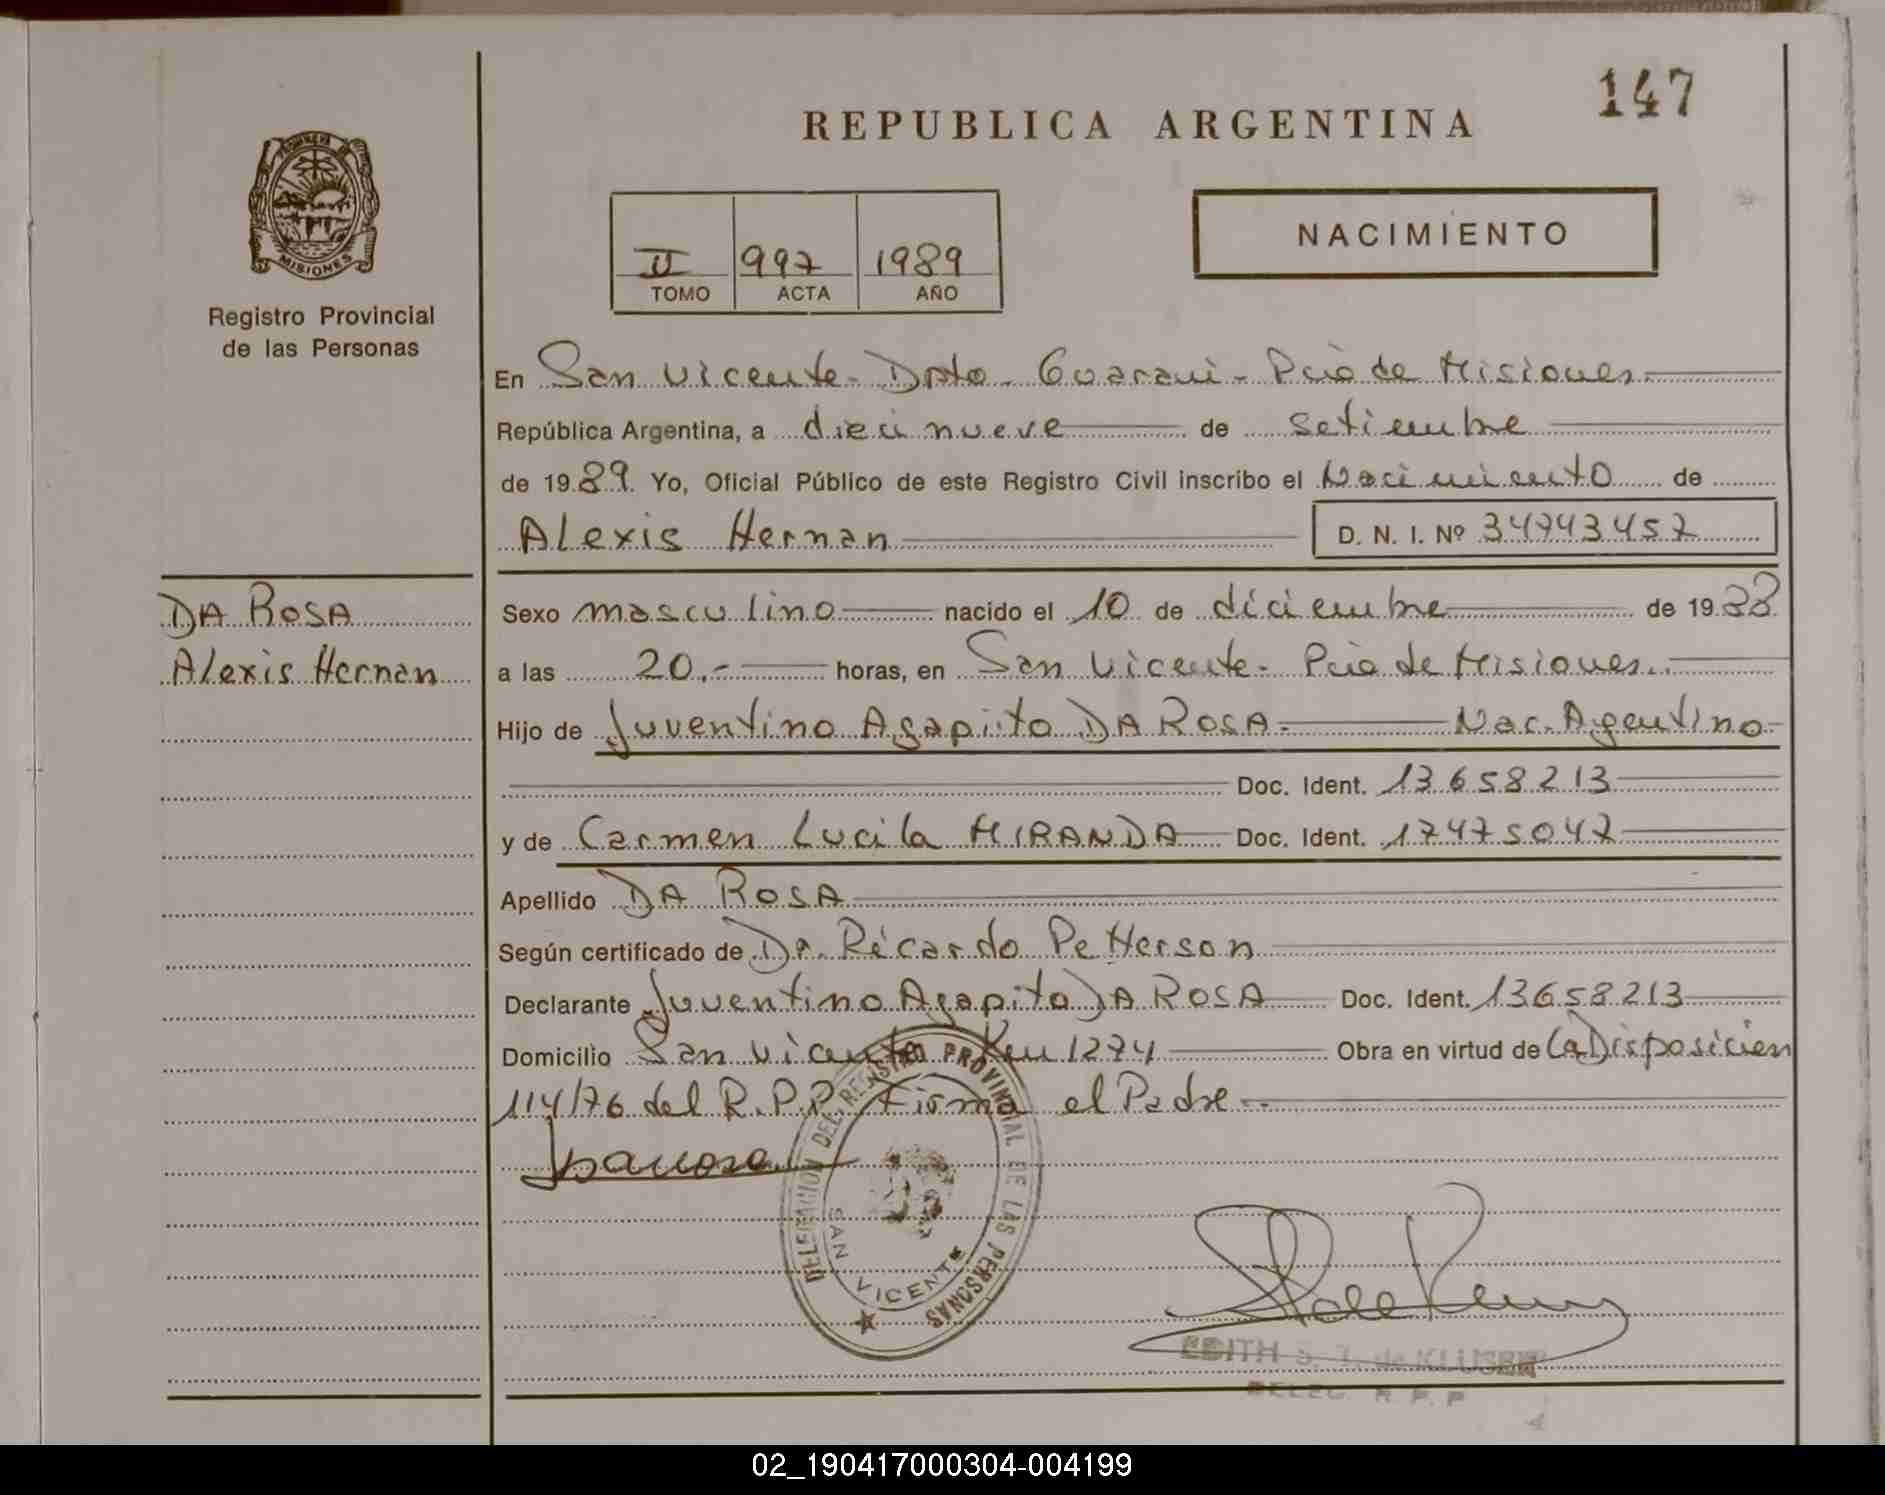 147
REPUBLICA ARGENTINA
PROVINCIA DE
MISIONES
Registro Provincial
de las Personas
NACIMIENTO
II 997 1989
TOMO ACTA AÑO
En San Vicente - Dpto. Guarani - Pcia de Misiones
República Argentina, a dieci nueve de setiembre
de 1989. Yo, Oficial Público de este Registro Civil inscribo el Nacimiento de
Alexis Hernan D. N. I. Nº 34743457
DA ROSA
Alexis Hernan
Sexo masculino nacido el 10 de diciembre de 1988
a las 20.- horas, en San Vicente - Pcia de Misiones.
Hijo de Juventino Agapito DA ROSA - Nac. Argentino
Doc. Ident. 13658213
y de Carmen Lucila MIRANDA Doc. Ident. 17475047
Apellido DA ROSA
Según certificado de Dr. Ricardo Petterson
Declarante Juventino Agapito DA ROSA Doc. Ident. 13658213
Domicilio San Vicente Km 1274 Obra en virtud de la Disposicion
114/76 del R.P.P. Firma el Padre -.
DELEGACION DEL REGISTRO PROVINCIAL DE LAS PERSONAS
SAN VICENTE
EDITH de KLUSEN
DELEG. R. P. P
02_190417000304-004199